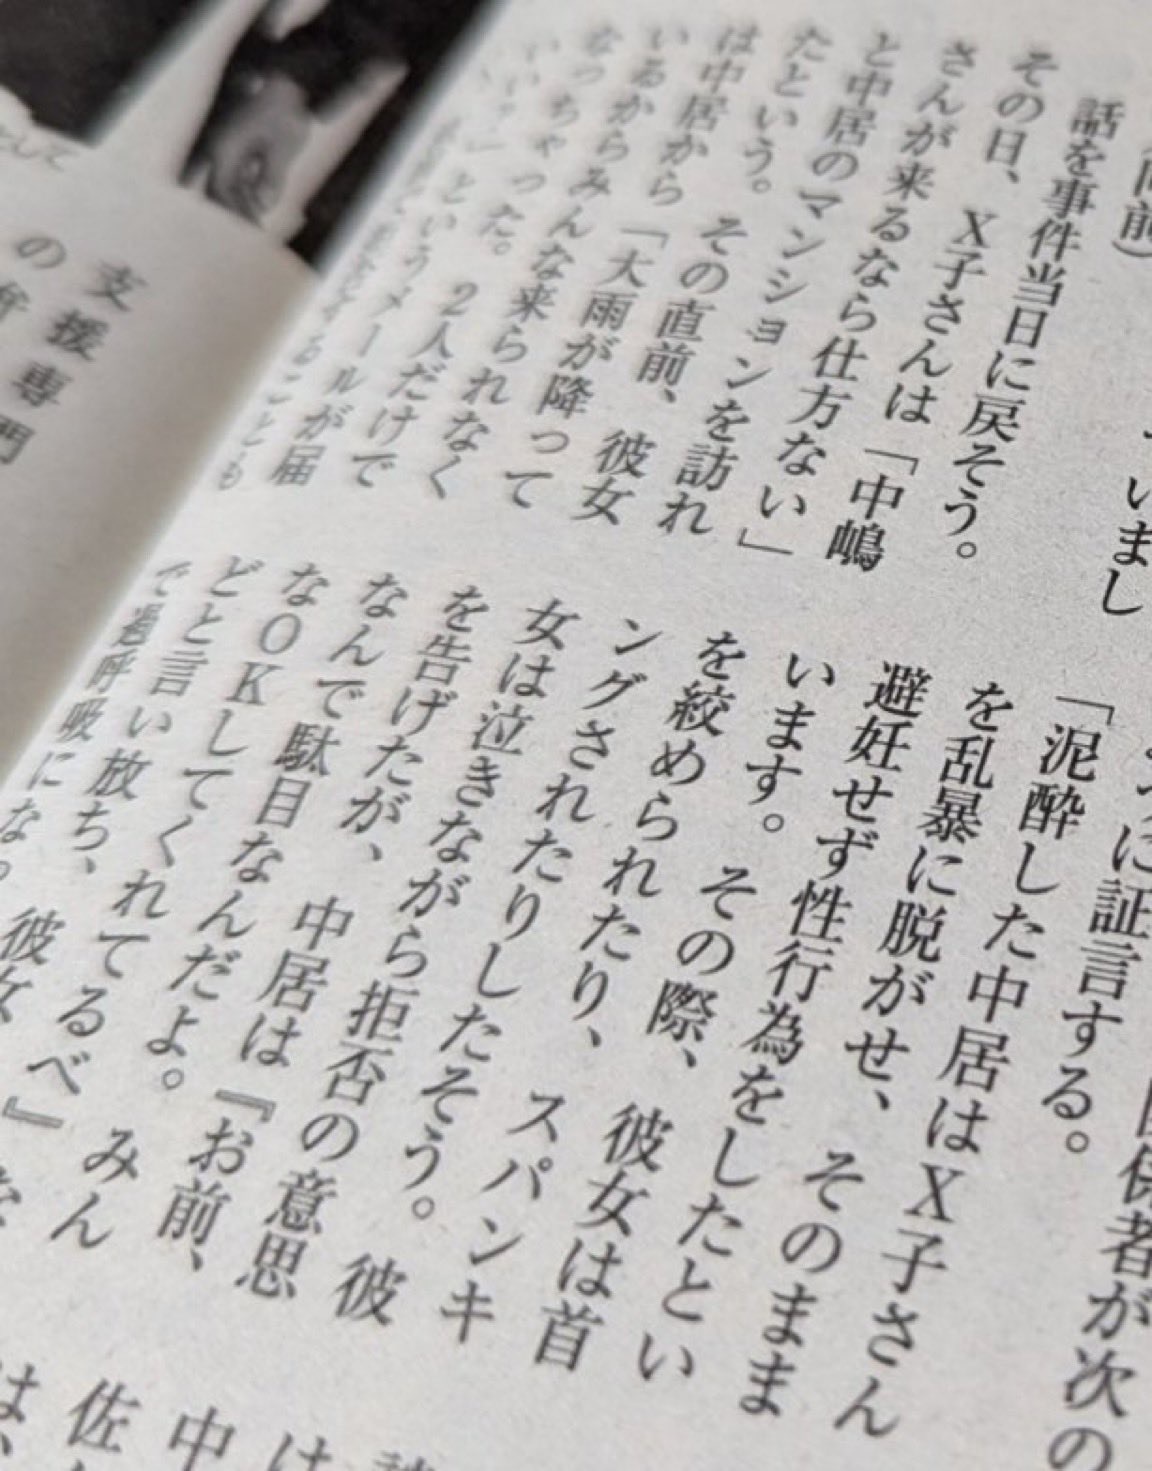 同前）
いまし
話を事件当日に戻そう。
その日、X子さんは「中嶋
さんが来るなら仕方ない」
と中居のマンションを訪れ
たという。その直前、彼女
は中居から「大雨が降って
いるからみんな来られなく
なっちゃった。2人だけで
いい？」というメールが届
することも
係者が次の
ように証言する。
「泥酔した中居はX子さん
を乱暴に脱がせ、そのまま
避妊せず性行為をしたとい
います。その際、彼女は首
を絞められたり、スパンキ
ングされたりしたそう。彼
女は泣きながら拒否の意思
を告げたが、中居は『お前、
なんで駄目なんだよ。みん
なOKしてくれてるべ』な
どと言い放ち、彼女
で過呼吸にな
は
中
佐
は、
として
支援専門
の弁